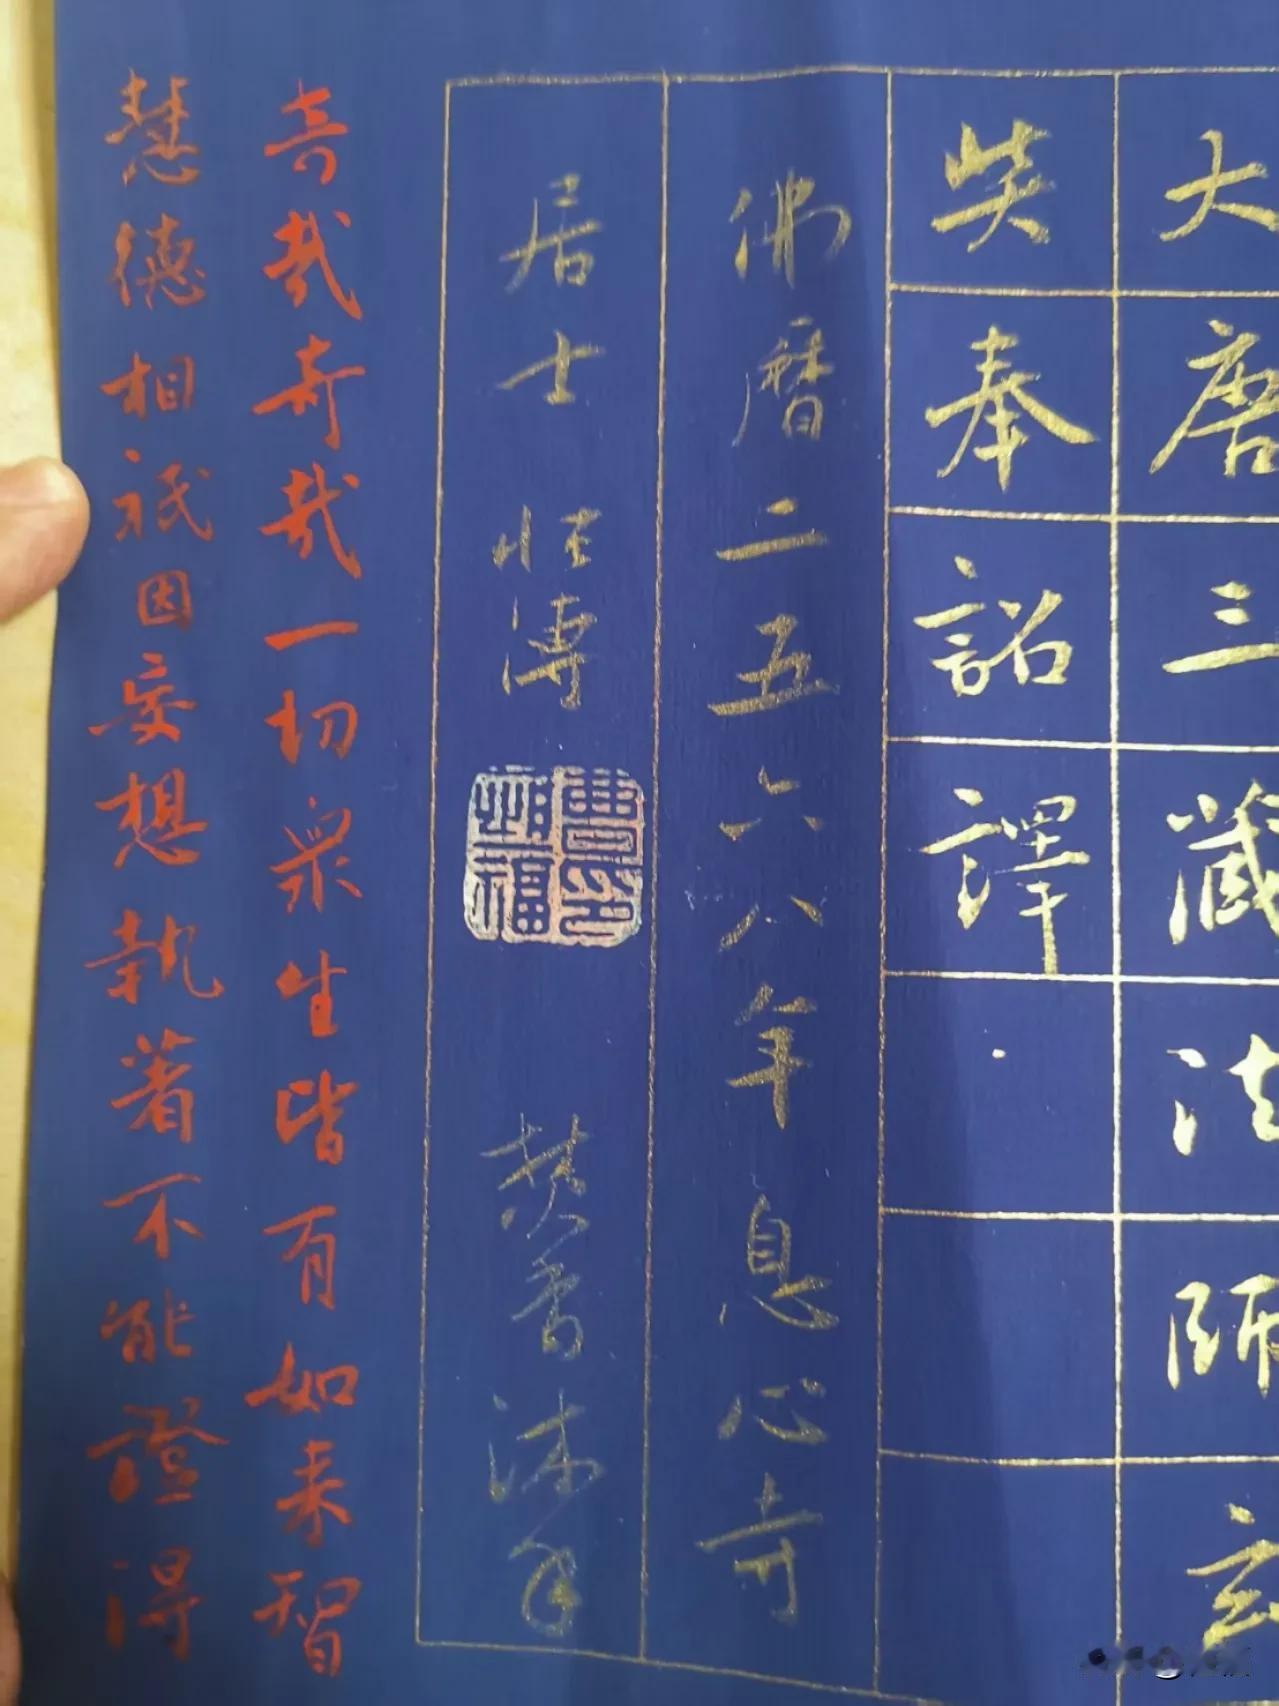 大唐三藏法師玄
奘奉詔譯
佛曆二五六八年息心寺
居士恒傳 焚香沐手
奇哉奇哉一切眾生皆有如来智
慧德相祇因妄想執著不能證得